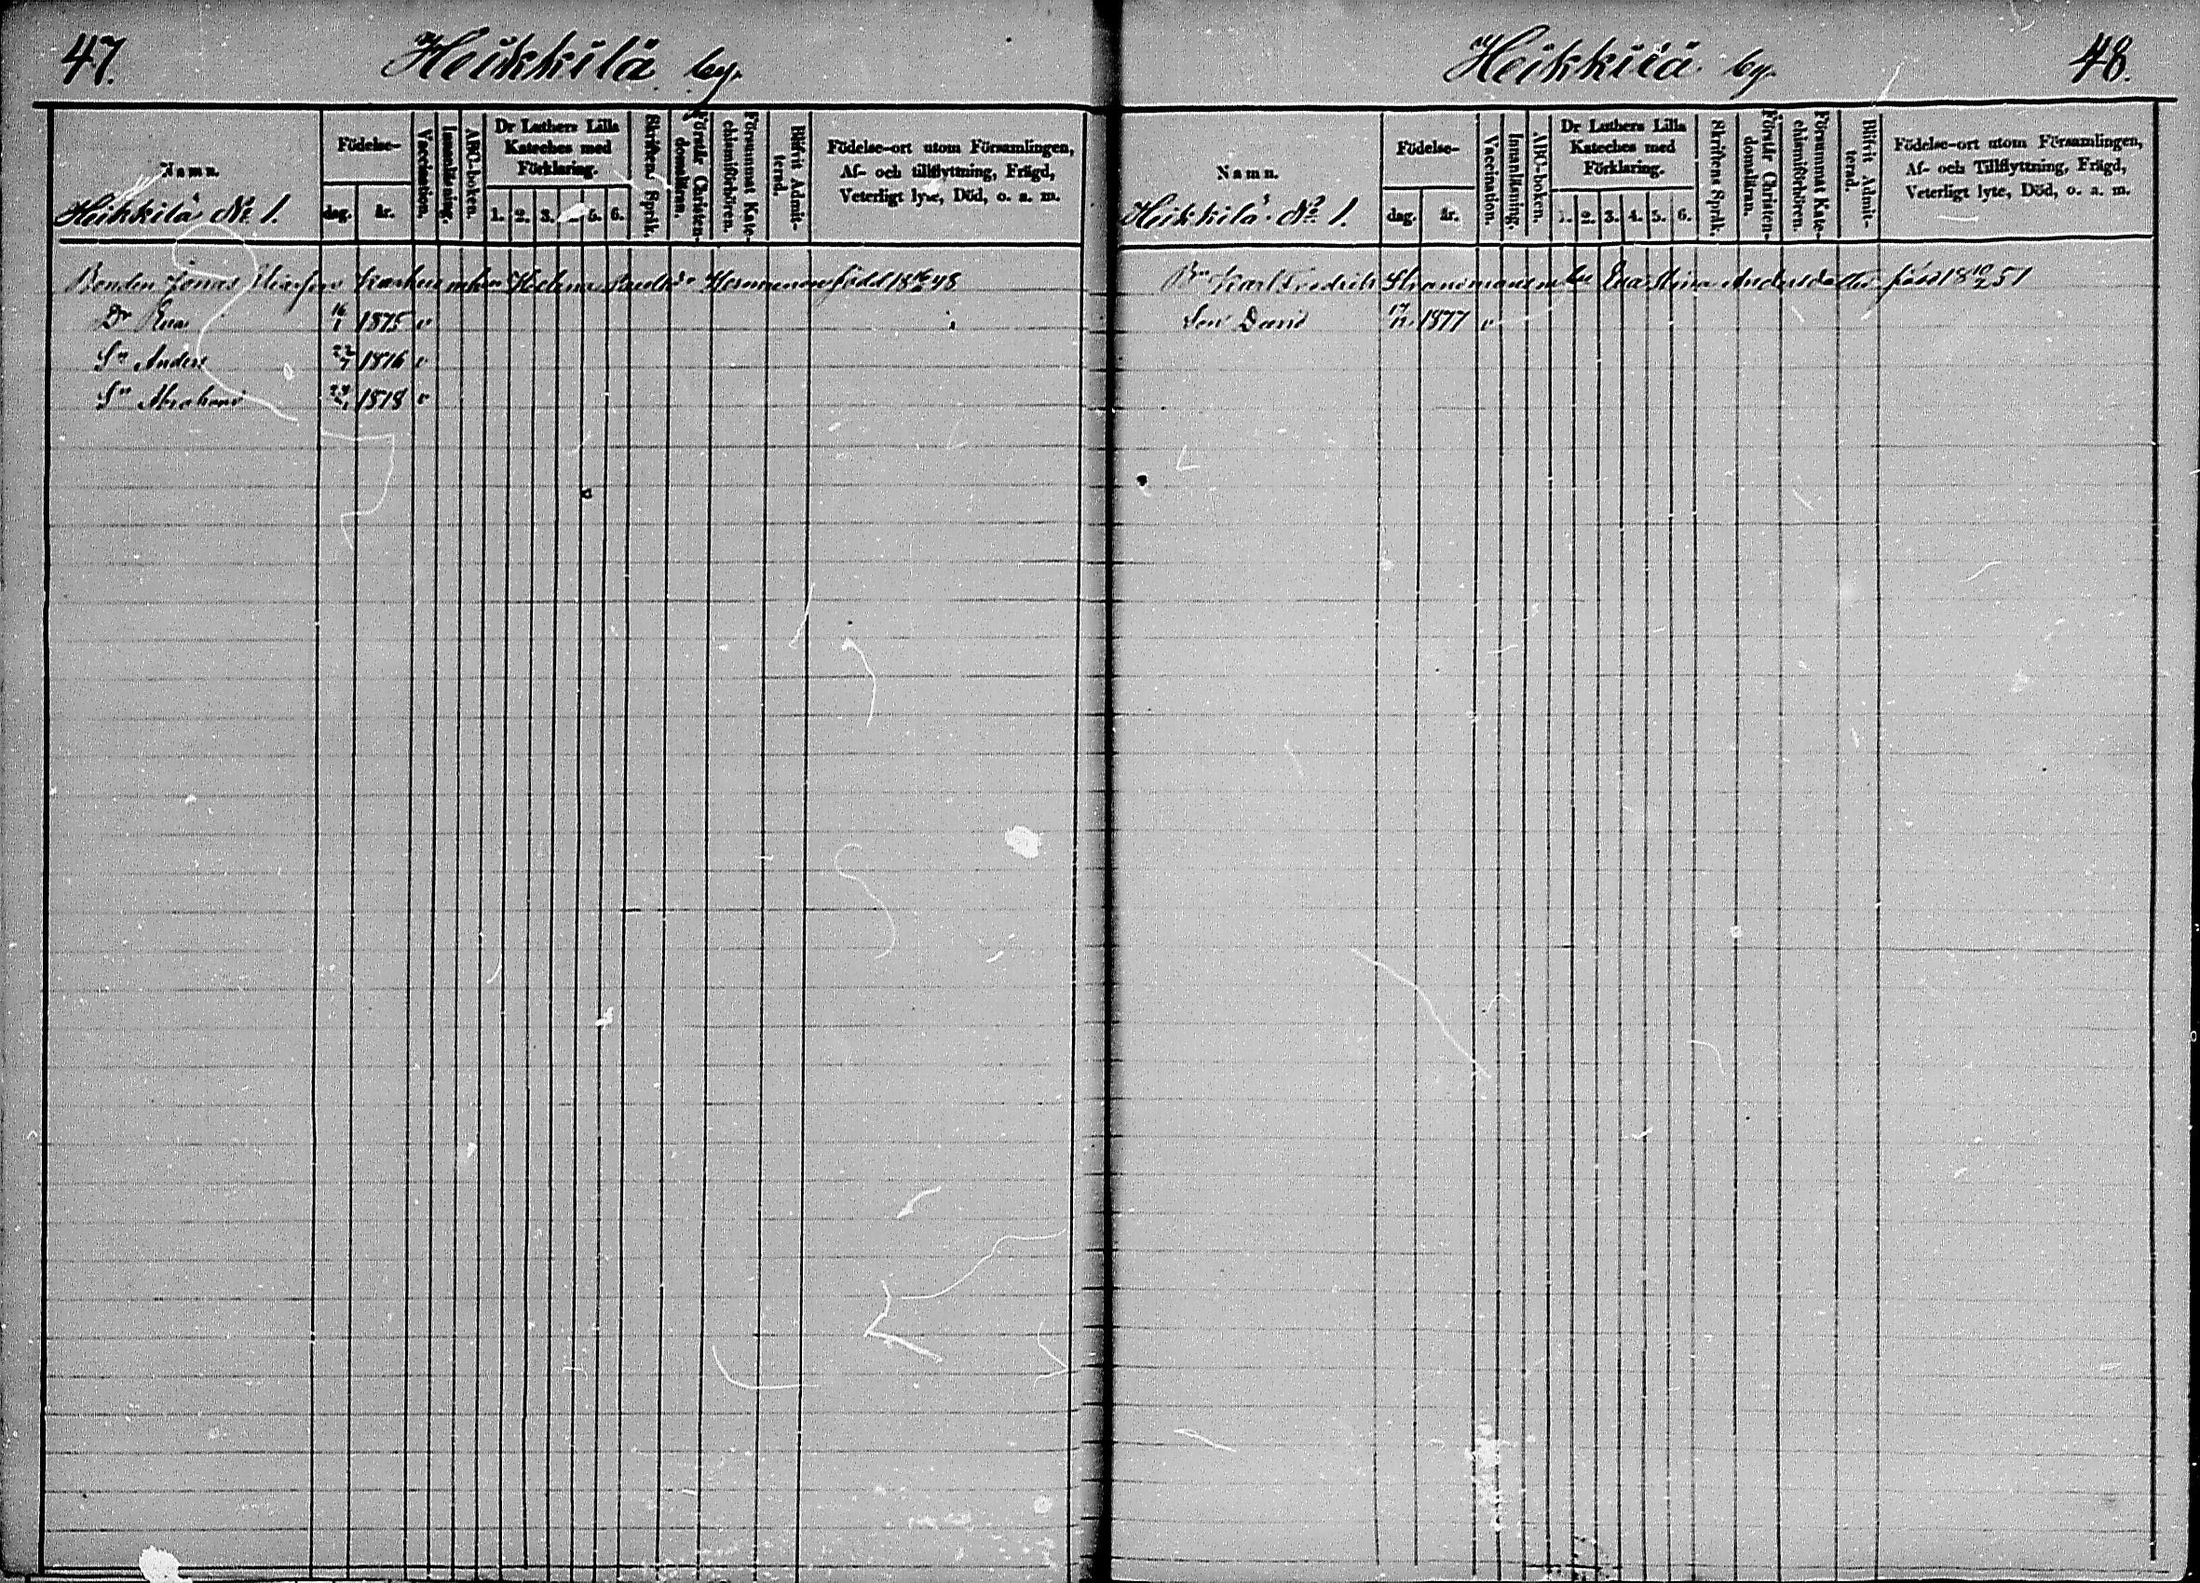 47.
Heikkilä by.
Namn.
Heikkilä No 1.
Födelse-
dag. år.
Vaccination.
Innanläsning.
ABC-boken.
Dr Luthers Lilla
Kateches med
Förklaring.
1. 2. 3. 5. 6.
Skriftens Språk.
Förstår Christen-
domsläran.
Försummat Kate-
chismiförhören.
Blifvit Admit-
terad.
Födelse-ort utom Församlingen,
Af- och tillflyttning, Frägd,
Veterligt lyte, Död, o. a. m.
Bonden Jonas Helena född 18 16/2 48
Dr Eva 16/1 1875 v
Sn Anders 22/7 1876 v
Sn Abraham 1878 v
48.
Heikkilä by.
Namn.
Heikkilä No 1.
Födelse-
dag. år.
Vaccination.
Innanläsning.
ABC-boken.
Dr Luthers Lilla
Kateches med
Förklaring.
1. 2. 3. 4. 5. 6.
Skriftens Språk.
Förstår Christen-
domsläran.
Försummat Kate-
chismiförhören.
Blifvit Admit-
terad.
Födelse-ort utom Församlingen,
Af- och Tillflyttning, Frägd,
Veterligt lyte, Död, o. a. m.
Bn Karl Fredrik Eva Stina Andersdotter född 18 10/2 51
Son David 17/11 1877 v